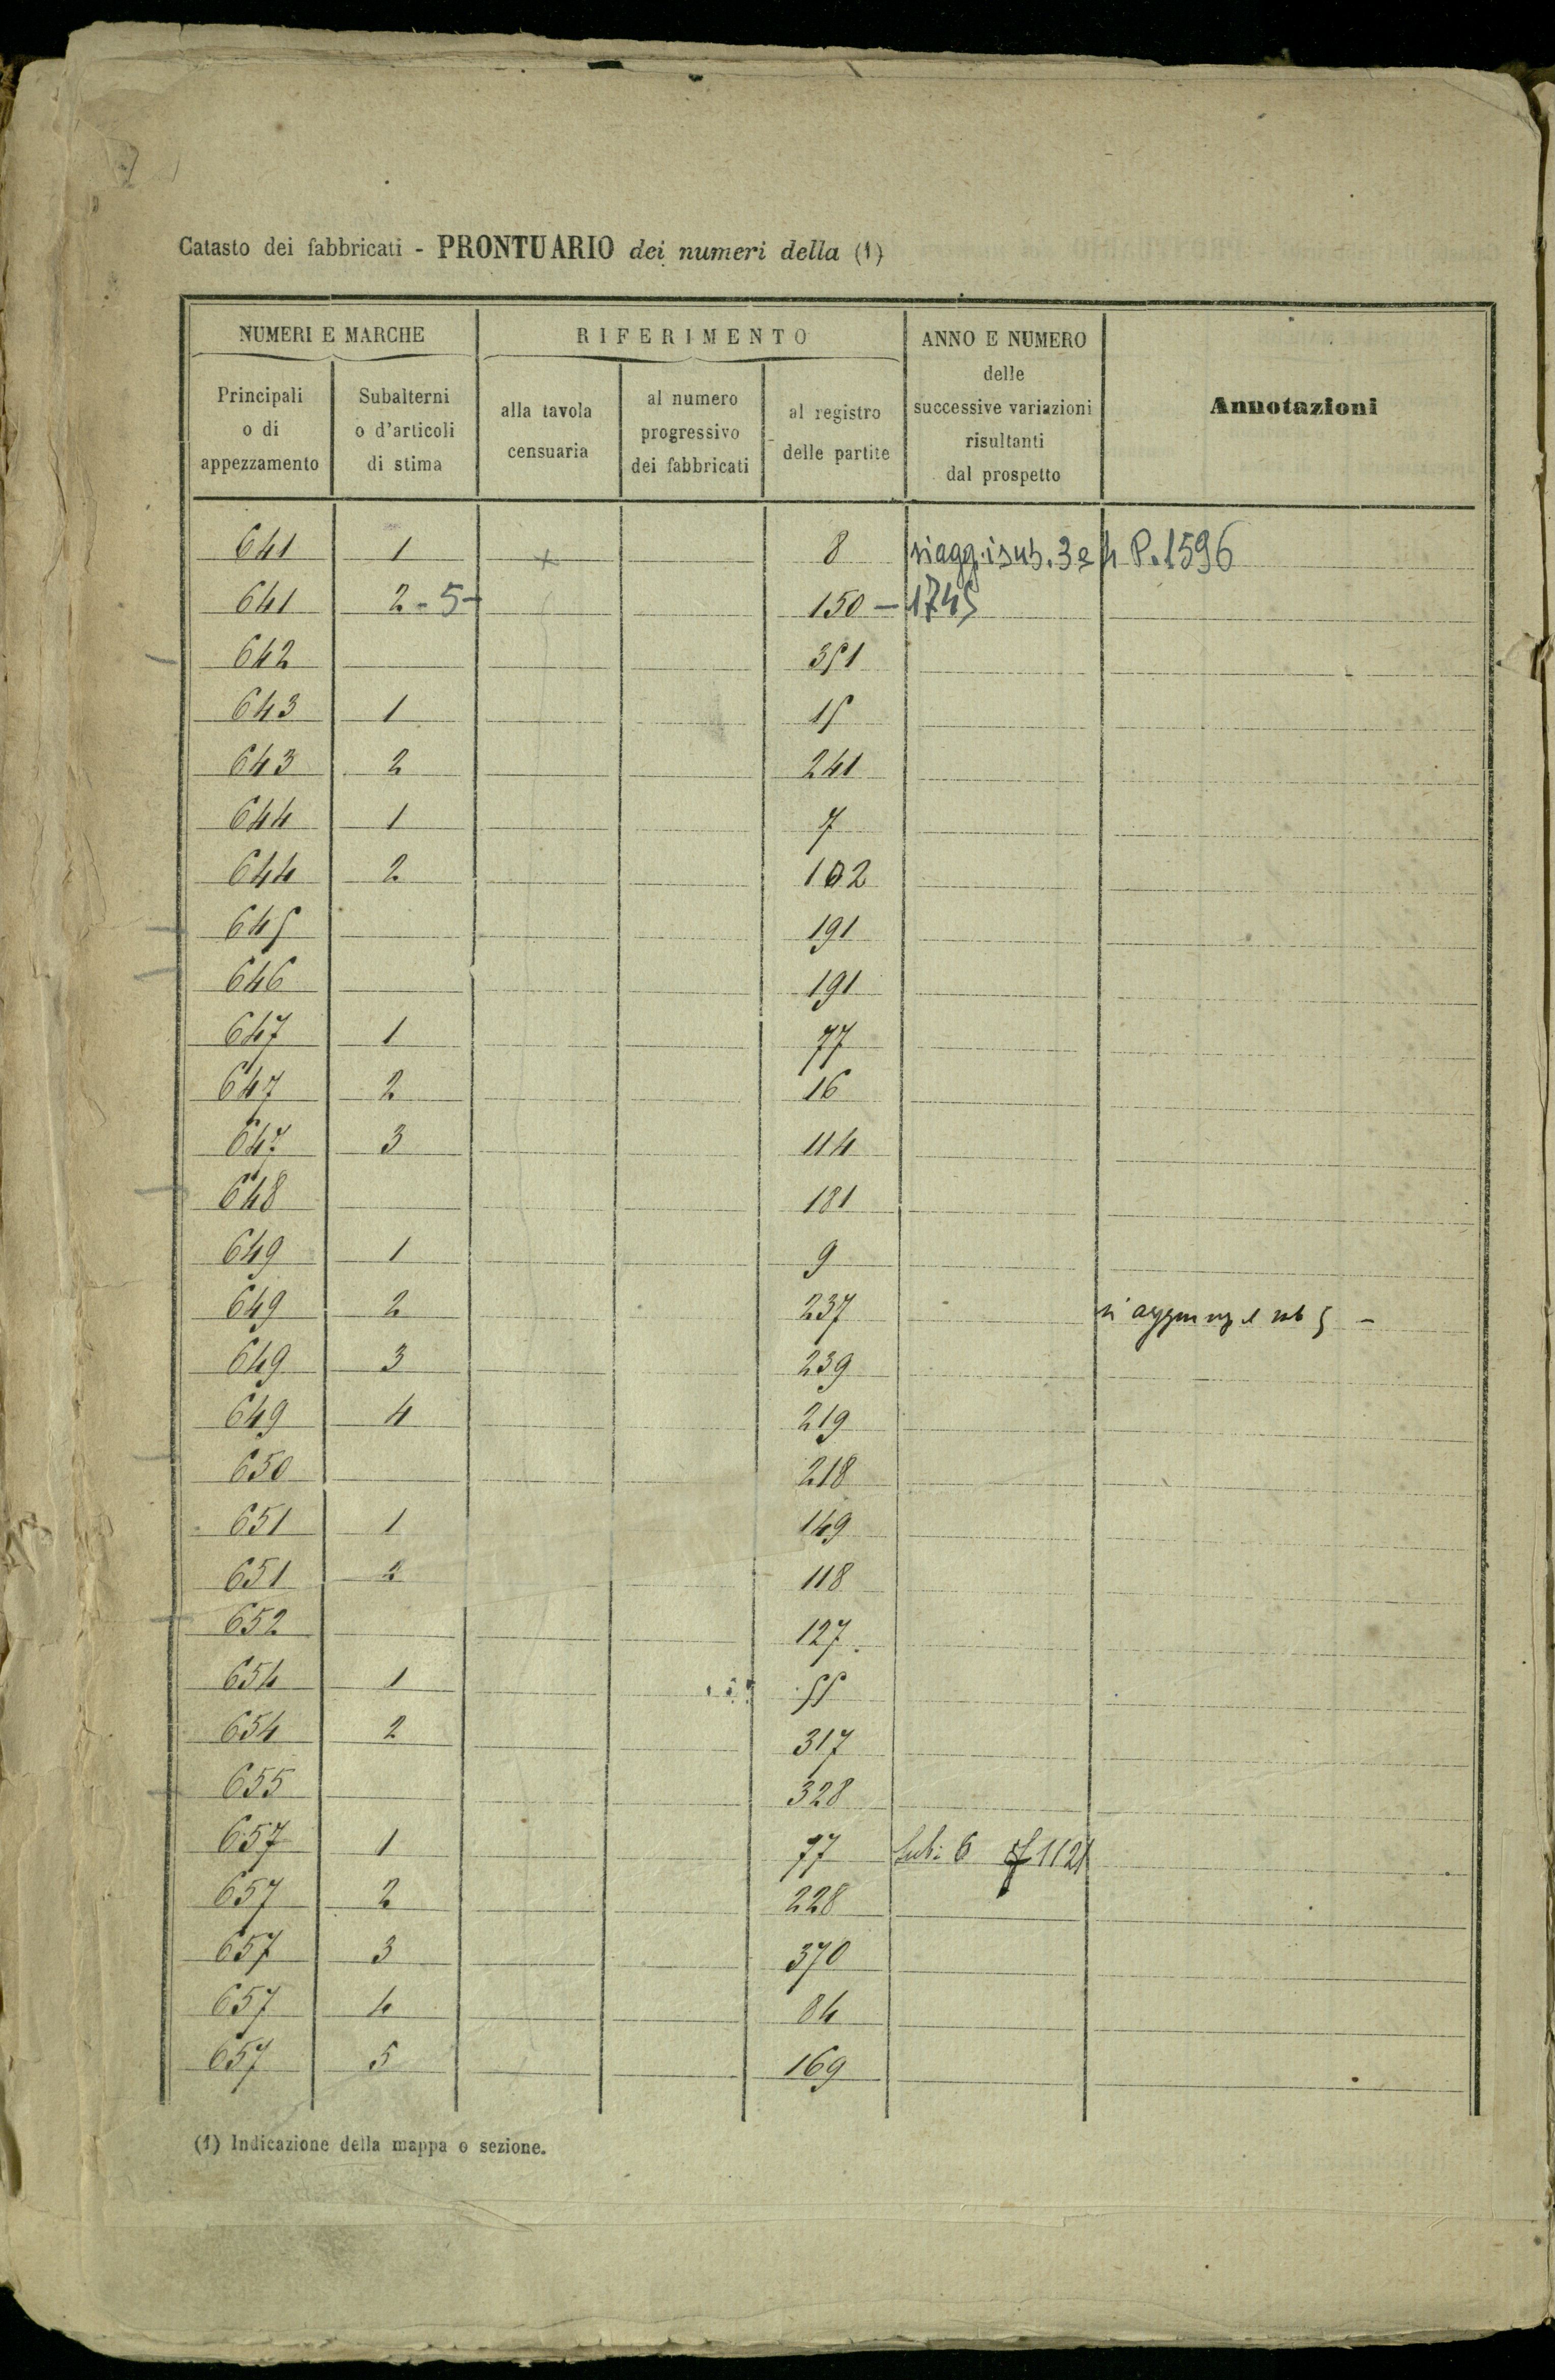 Catasto dei fabbricati - PRONTUARIO dei numeri della (1)
NUMERI E MARCHE
RIFERIMENTO
ANNO E NUMERO
delle
successive variazioni
risultanti
dal prospetto
Annotazioni
Principali
o di
appezzamento
Subalterni
o d'articoli
di stima
alla tavola
censuaria
al numero
progressivo
dei fabbricati
al registro
delle partite
641 1 8 si agg. i sub. 3 e 4 P. 1596
641 2-5- 150 - 1745
642 351
643 1 15
643 2 241
644 1 7
644 2 102
645 191
646 191
647 1 77
647 2 16
647 3 114
648 181
649 1 9
649 2 237 si aggiunge sub 5 -
649 3 239
649 4 219
650 218
651 1 149
651 2 118
652 127
654 1 55
654 2 317
655 328
657 1 77 Sub: 6
657 2 228
657 3 370
657 4 84
657 5 169
(1) Indicazione della mappa o sezione.